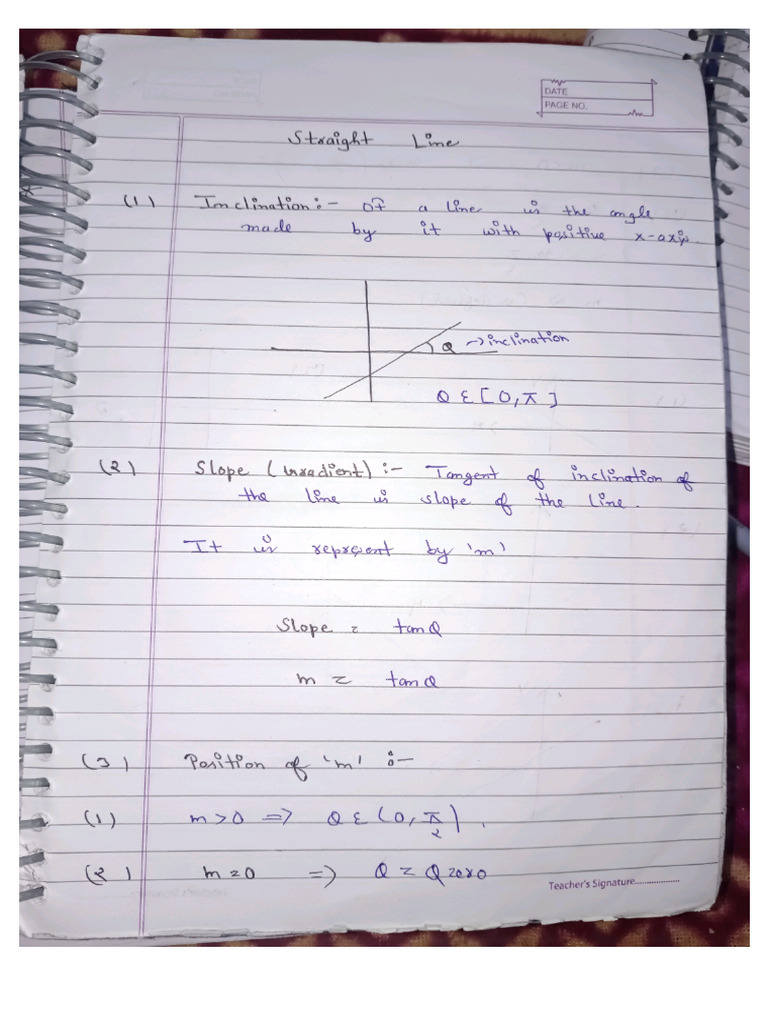 DATE
PAGE NO.
Straight Line
(1) Inclination:- of a line is the angle
made by it with positive x-axis.
Q → inclination
Q ε [0, π]
(2) Slope (Gradient) :- Tangent of inclination of
the line is slope of the line.
It is represent by 'm'
Slope = tanQ
m = tanQ
(3) Position of 'm' :-
(1) m>0 => Q ε (0, π/2).
(2) m=0 => Q = Q zero
Teacher's Signature....................